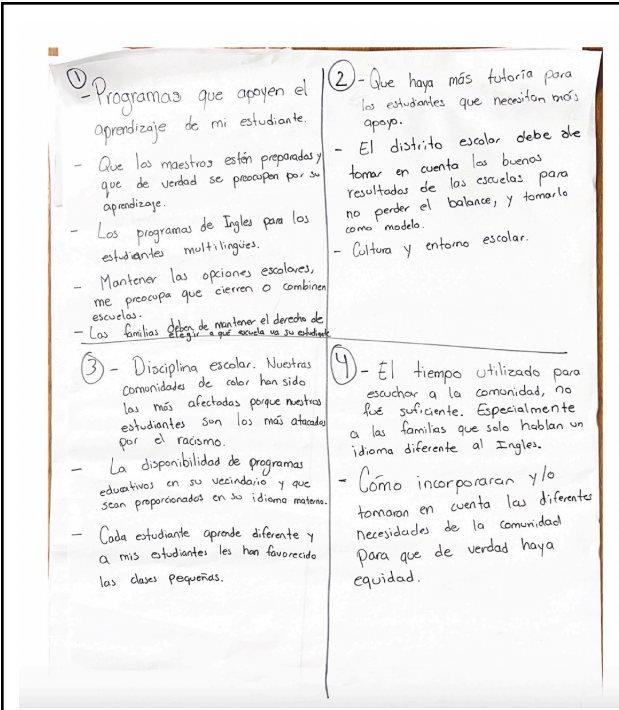 ① - Programas que apoyen el
aprendizaje de mi estudiante.
- Que los maestros estén preparados y
que de verdad se preocupen por su
aprendizaje.
- Los programas de Ingles para los
estudiantes multilingües.
- Mantener las opciones escolares,
me preocupa que cierren o combinen
escuelas.
- Las familias deben de mantener el derecho de
elegir a qué escuela va su estudiante
② - Que haya más tutoría para
los estudiantes que necesitan más
apoyo.
- El distrito escolar debe de
tomar en cuenta los buenos
resultados de las escuelas para
no perder el balance, y tomarlo
como modelo.
- Cultura y entorno escolar.
③ - Disciplina escolar. Nuestras
comunidades de color han sido
las más afectadas porque nuestros
estudiantes son los más atacados
por el racismo.
- La disponibilidad de programas
educativos en su vecindario y que
sean proporcionados en su idioma materno.
- Cada estudiante aprende diferente y
a mis estudiantes les han favorecido
las clases pequeñas.
④ - El tiempo utilizado para
escuchar a la comunidad, no
fué suficiente. Especialmente
a las familias que solo hablan un
idioma diferente al Ingles.
- Cómo incorporaran y/o
tomaron en cuenta las diferentes
necesidades de la comunidad
para que de verdad haya
equidad.